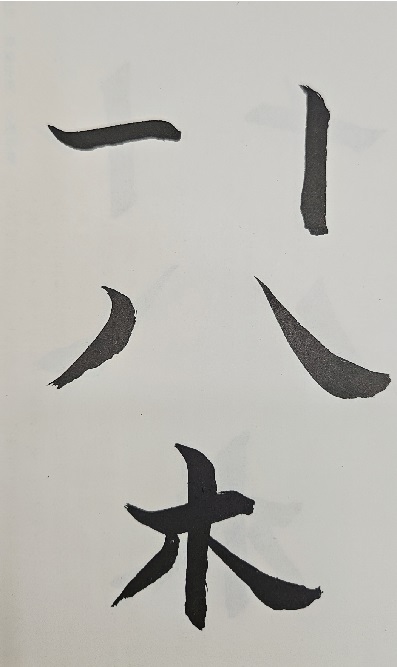 一丨
丿㇏
木